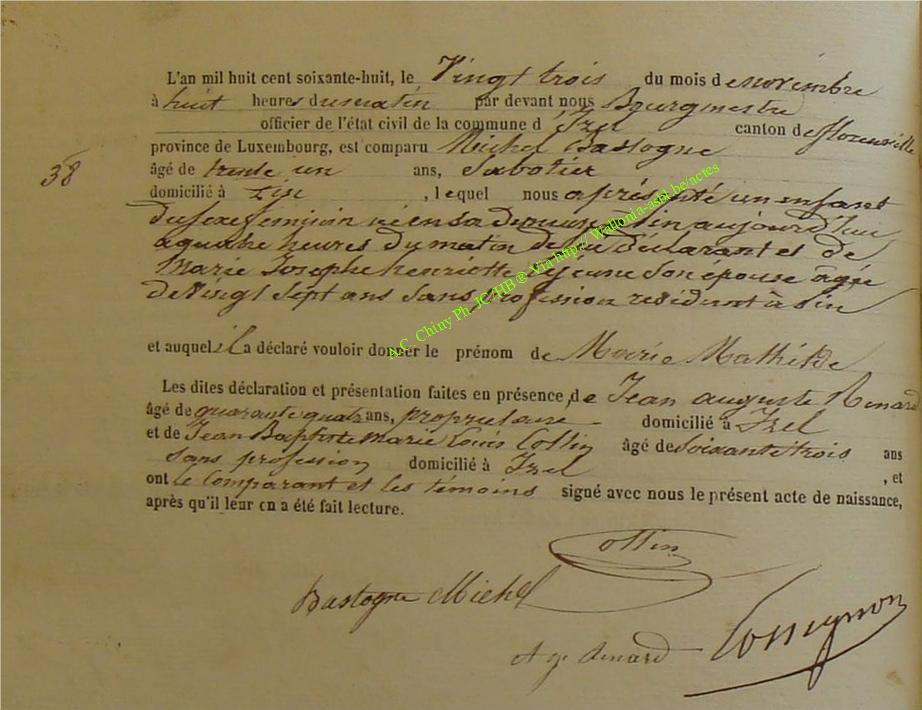 L'an mil huit cent soixante-huit, le Vingt trois du mois de novembre
à huit heures du matin par devant nous Bourgmestre
officier de l'état civil de la commune d'Izel canton de florenville
province de Luxembourg, est comparu Michel Bastogne
38
âgé de trente un ans, Sabotier
domicilié à pin, lequel nous a présenté un enfant
du sexe feminin né en sa demeure à pin aujourd'hui
a quatre heures du matin de lui déclarant et de
Marie Josephe henriette Lejeune son epouse agée
de Vingt Sept ans Sans profession résident à pin
et auquel il a déclaré vouloir donner le prénom de Marie Mathilde
Les dites déclaration et présentation faites en présence, de Jean auguste Renard
âgé de quarante quatre ans, propriétaire domicilié à Izel
et de Jean Baptiste Marie Louis Collin âgé de soixante trois ans
sans profession domicilié à Izel, et
ont le Comparant et les témoins signé avec nous le présent acte de naissance,
après qu'il leur en a été fait lecture.
Collin
Bastogne Michel
Renard
A.C. Chiny Ph. JC/HB ® Via http://Wallonia-asbl.be/actes